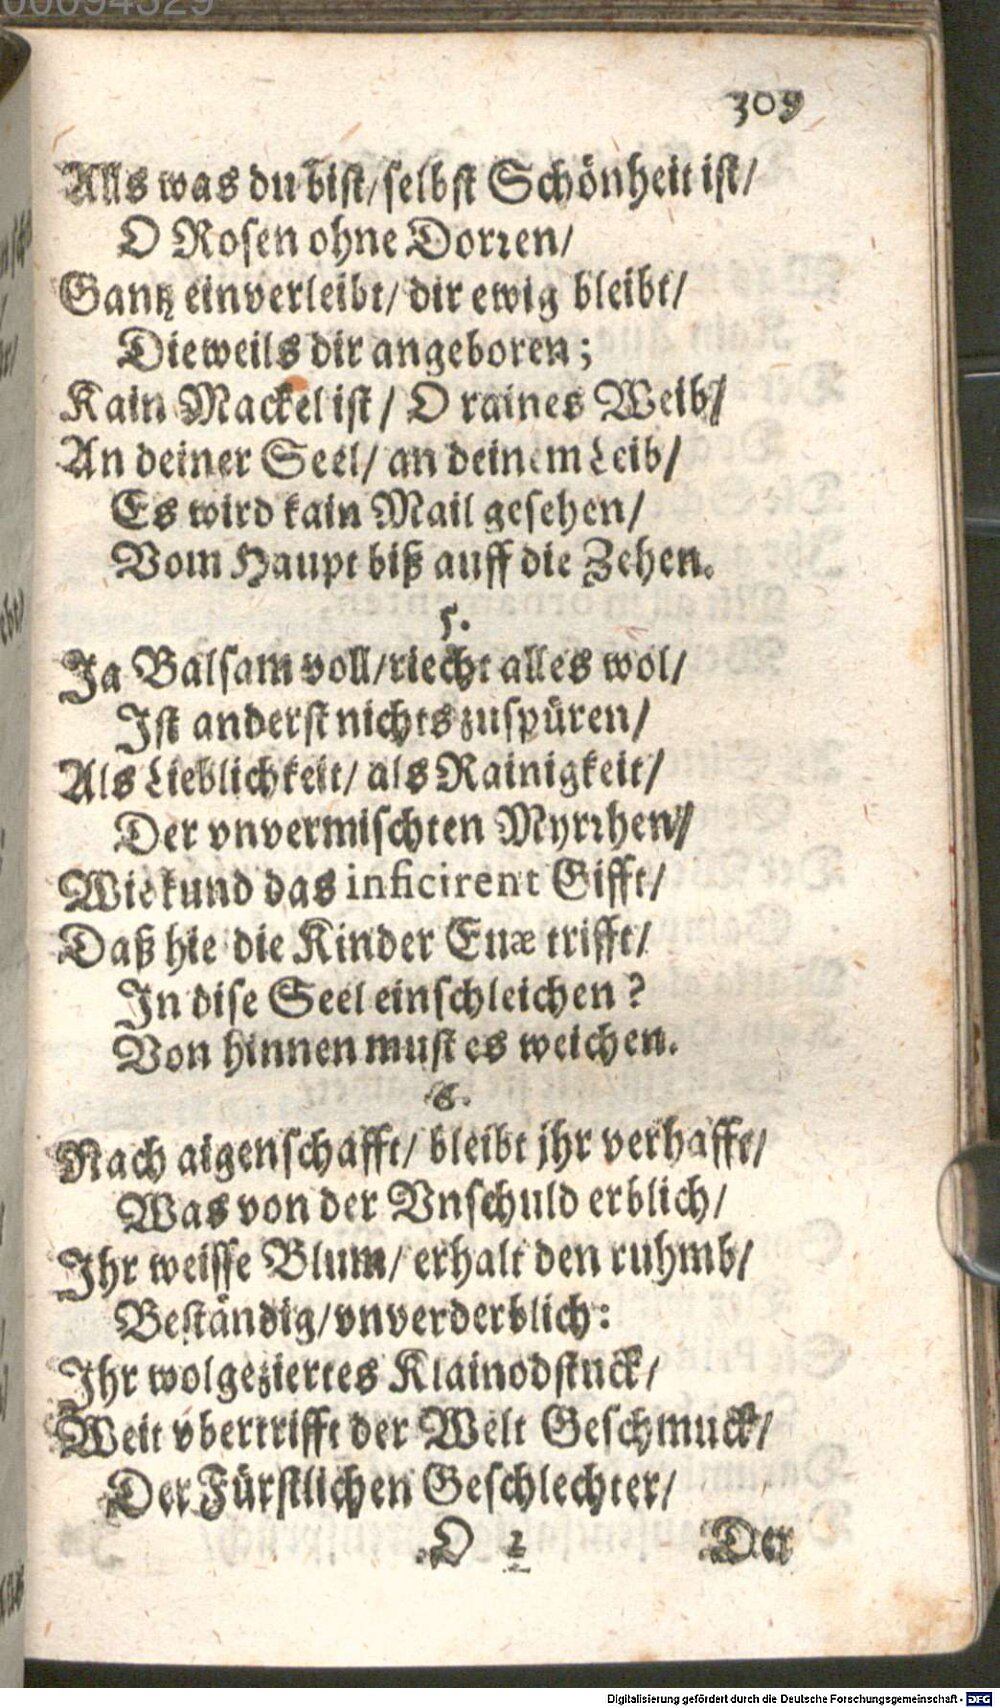 00094329
309
Alls was du bist/ selbst Schönheit ist/
O Rosen ohne Dorꝛen/
Gantz einverleibt/ dir ewig bleibt/
Dieweils dir angeboren;
Kain Mackel ist/ O raines Weib/
An deiner Seel/ an deinem Leib/
Es wird kain Mail gesehen/
Vom Haupt biß auff die Zehen.
5.
Ja Balsam voll/ riecht alles wol/
Ist anderst nichts zuspüren/
Als Lieblichkeit/ als Rainigkeit/
Der vnvermischten Myrꝛhen/
Wie kund das inficirent Gifft/
Daß hie die Kinder Euæ trifft/
In dise Seel einschleichen?
Von hinnen must es weichen.
6.
Nach aigenschafft/ bleibt jhr verhafft/
Was von der Vnschuld erblich/
Ihr weisse Blum/ erhalt den ruhmb/
Beständig/ vnverderblich:
Ihr wolgeziertes Klainodstuck/
Weit vbertrifft der Welt Geschmuck/
Der Fürstlichen Geschlechter/
O 2 Der
Digitalisierung gefördert durch die Deutsche Forschungsgemeinschaft - DFG